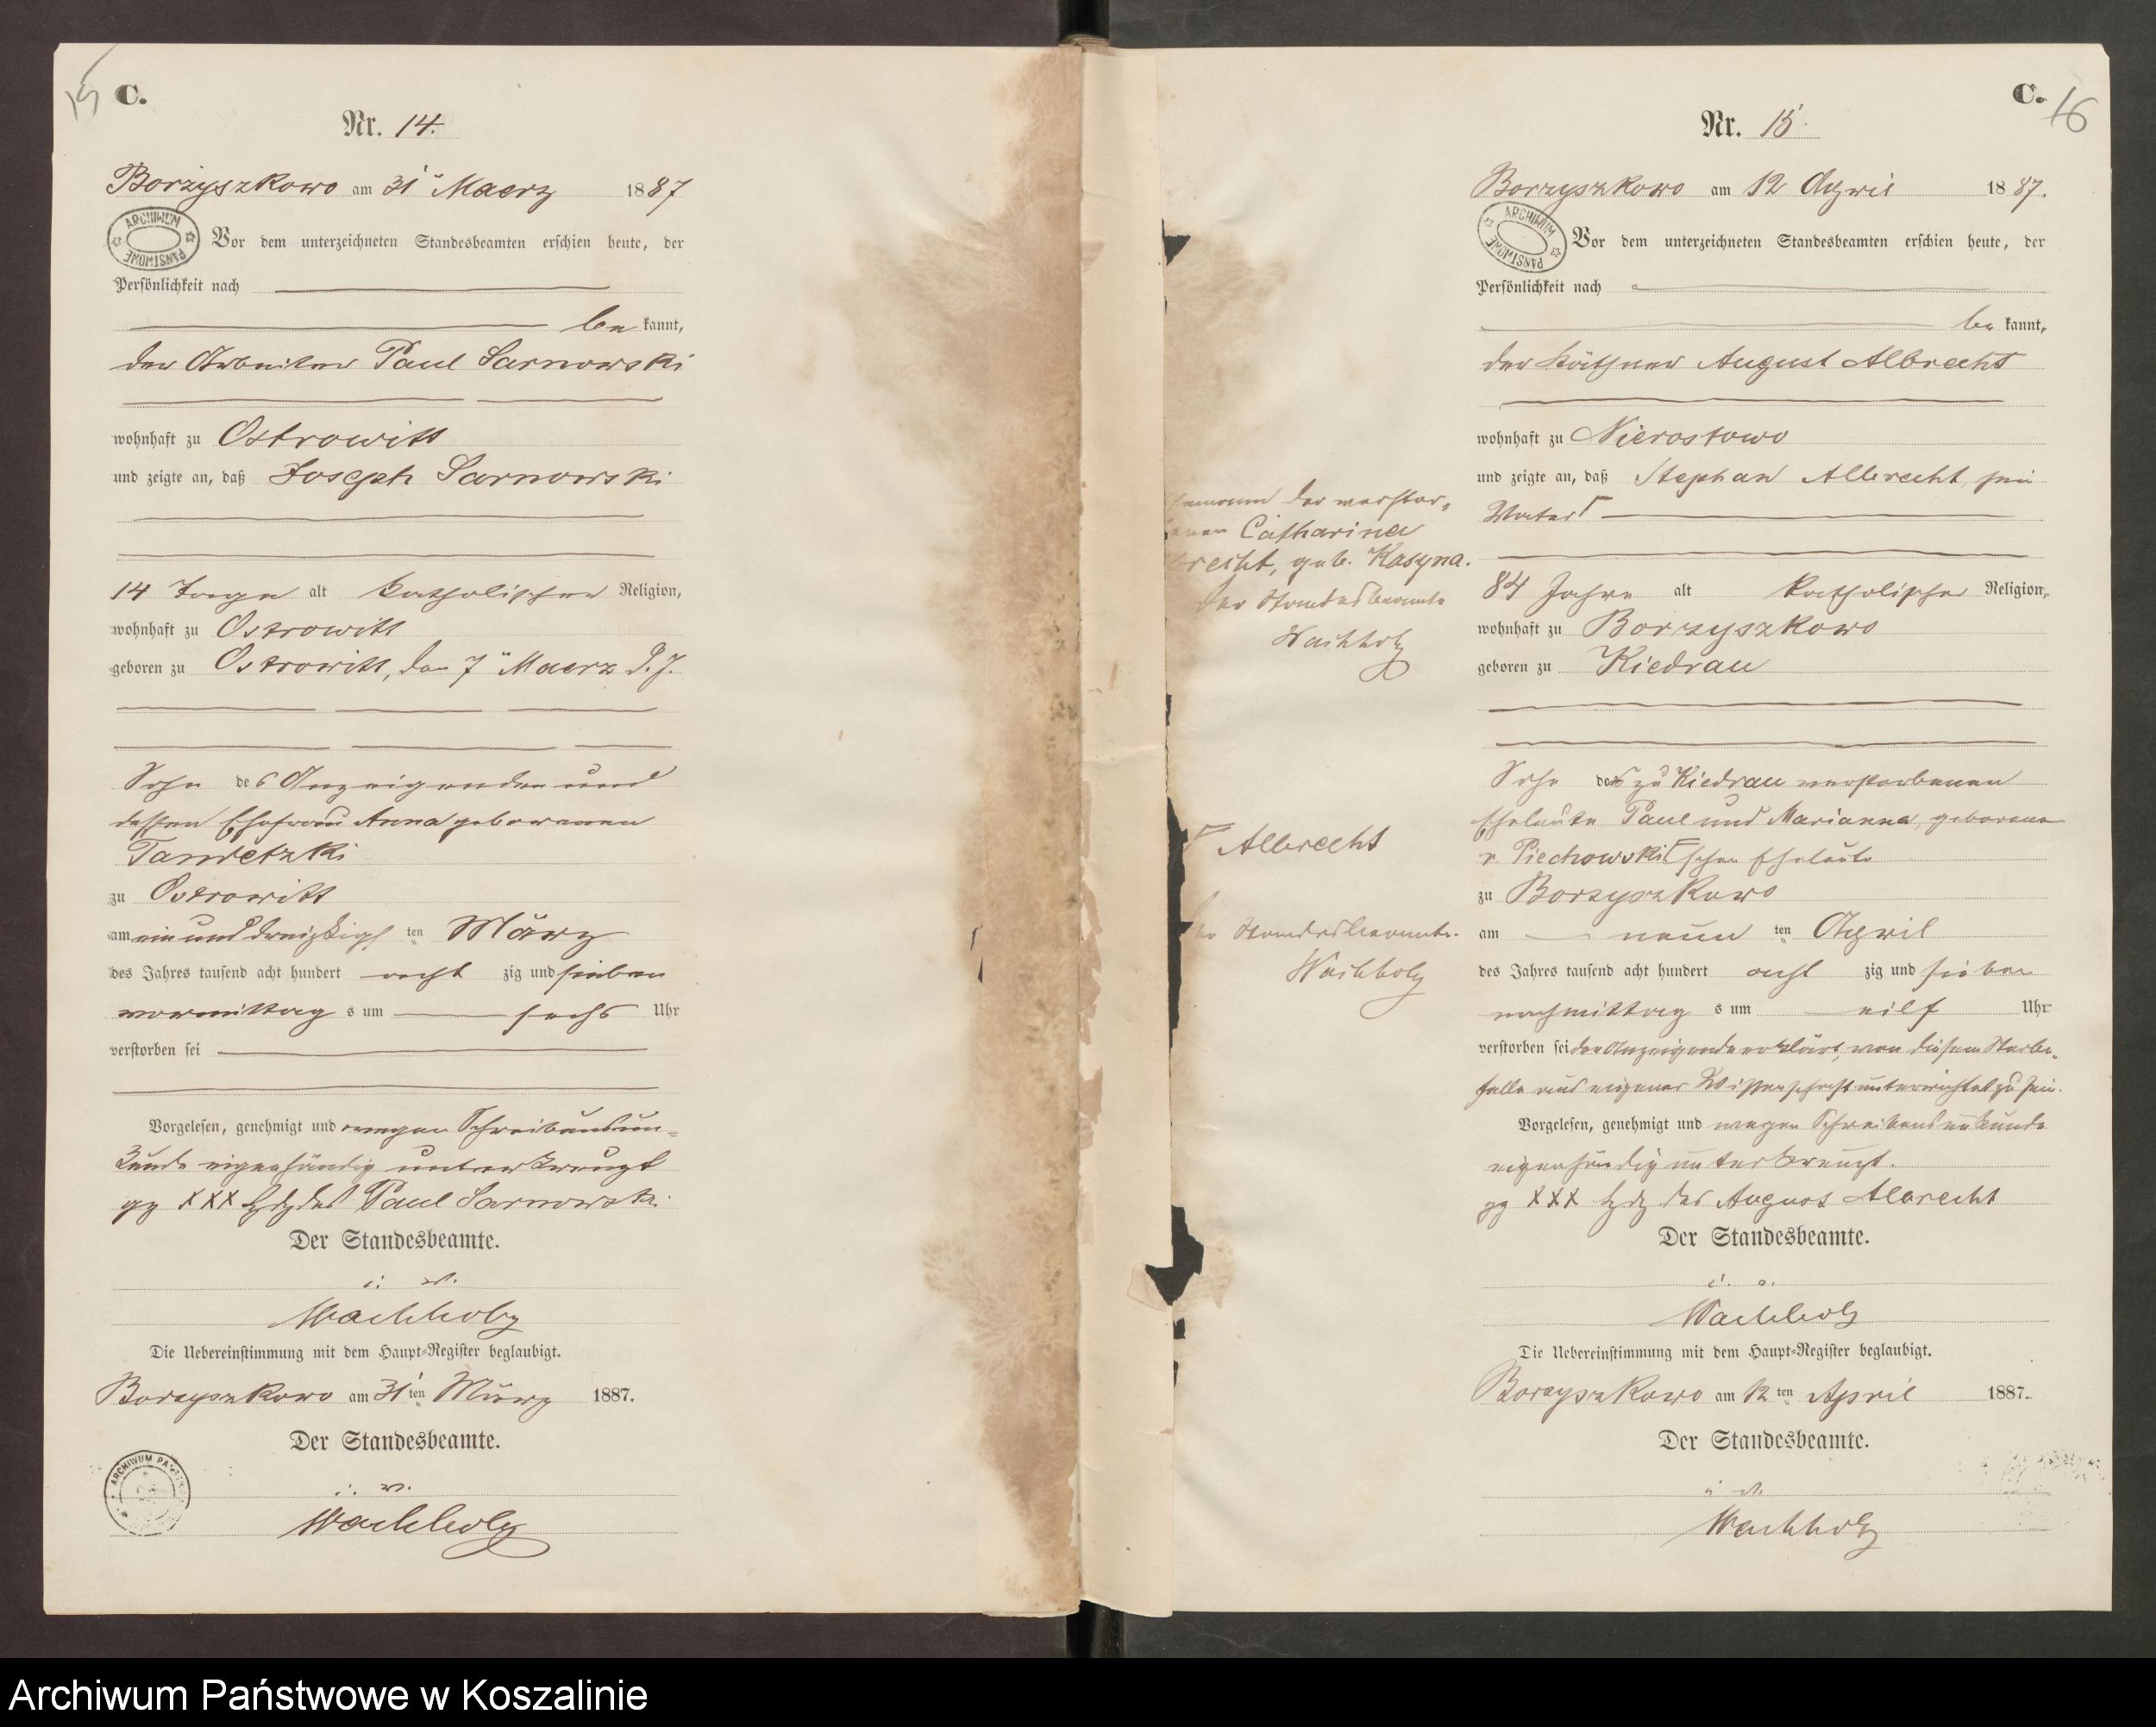 15
C.
Nr. 14.
Borzyszkowo am 31ten Maerz 1887
ARCHIWUM PAŃSTWOWE
Vor dem unterzeichneten Standesbeamten erschien heute, der
Persönlichkeit nach
be kannt,
der Arbeiter Paul Sarnowski
wohnhaft zu Ostrowitt
und zeigte an, daß Joseph Sarnowski
14 Tage alt katholischer Religion,
wohnhaft zu Ostrowitt
geboren zu Ostrowitt, den 7ten Maerz d. J.
Sohn des Anzeigenden und
dessen Ehefrau Anna geborenen
zu Ostrowitt
am ein und dreizigsten März
des Jahres tausend acht hundert acht zig und sieben
vormittag s um sechs Uhr
verstorben sei
Vorgelesen, genehmigt und wegen Schreibensun-
kunde eigenhändig unterkreuzt
gz XXX Hdz des Paul Sarnowski
Der Standesbeamte.
i. V.
Wachholz
Die Uebereinstimmung mit dem Haupt-Register beglaubigt.
Borzyszkowo am 31ten März 1887.
Der Standesbeamte.
i. V.
Wachholz
ARCHIWUM
C. 16
Nr. 15
Borzyszkowo am 12 April 1887.
ARCHIWUM PAŃSTWOWE
Vor dem unterzeichneten Standesbeamten erschien heute, der
Persönlichkeit nach
be kannt,
der Käthner August Albrecht
wohnhaft zu Nierostowo
und zeigte an, daß Stephan Albrecht, sein
Vater ┌
84 Jahre alt katholischer Religion,
wohnhaft zu Borzyszkowo
geboren zu Kiedrau
Sohn der zu Kiedrau verstorbenen
Eheleute Paul und Marianna, geborene
v. Piechowski ┌schen Eheleute
zu Borzyszkowo
am neun ten April
des Jahres tausend acht hundert acht zig und sieben
nachmittag s um eilf Uhr
verstorben sei der Anzeigende erklärt, von diesem Sterbe-
falle aus eigener Wissenschaft unterrichtet zu sein.
Vorgelesen, genehmigt und wegen Schreibensunkunde
eigenhändig unterkreuzt.
gz XXX Hdz des August Albrecht
Der Standesbeamte.
i. V.
Wachholz
Die Uebereinstimmung mit dem Haupt-Register beglaubigt.
Borzyszkowo am 12ten April 1887.
Der Standesbeamte.
i. V.
Wachholz
hemann der verstor-
enen Catharina
brecht, geb. Kasyna.
Der Standesbeamte
Wachholz
┌ Albrecht
Der Standesbeamte.
Wachholz
Archiwum Państwowe w Koszalinie